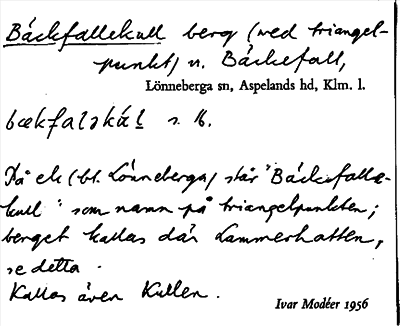 Bäckfallekull berg (med triangel-
punkt) n. Bäckefall,
Lönneberga sn, Aspelands hd, Klm. l.
bækfaləkúl̠ s. 16.
På ek (bl. Lönneberga) står "Bäckefalle-
kull" som namn på triangelpunkten;
berget kallas där Lammerhatten,
se detta.
Kallas även Kullen.
Ivar Modéer 1956